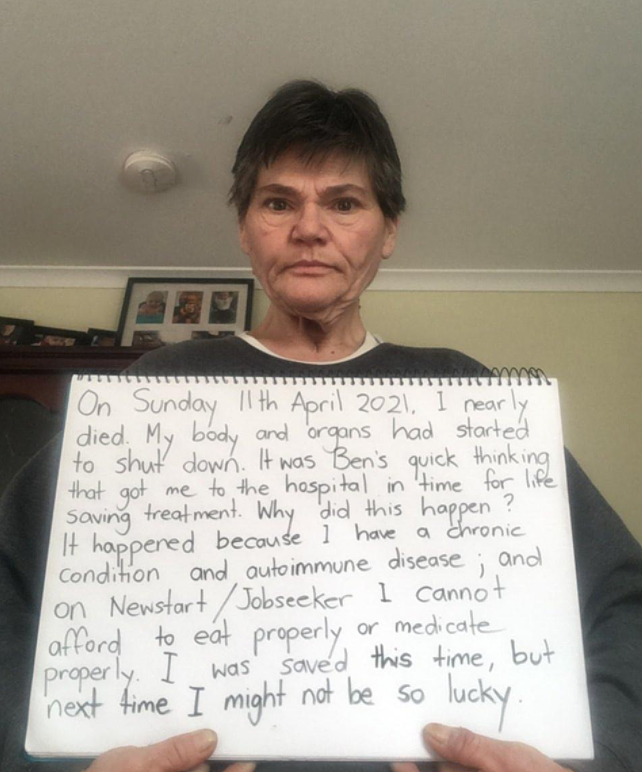 On Sunday 11th April 2021, I nearly
died. My body and organs had started
to shut down. It was Ben's quick thinking
that got me to the hospital in time for life
saving treatment. Why did this happen?
It happened because I have a chronic
condition and autoimmune disease; and
on Newstart/Jobseeker I cannot
afford to eat properly or medicate
properly. I was saved this time, but
next time I might not be so lucky.